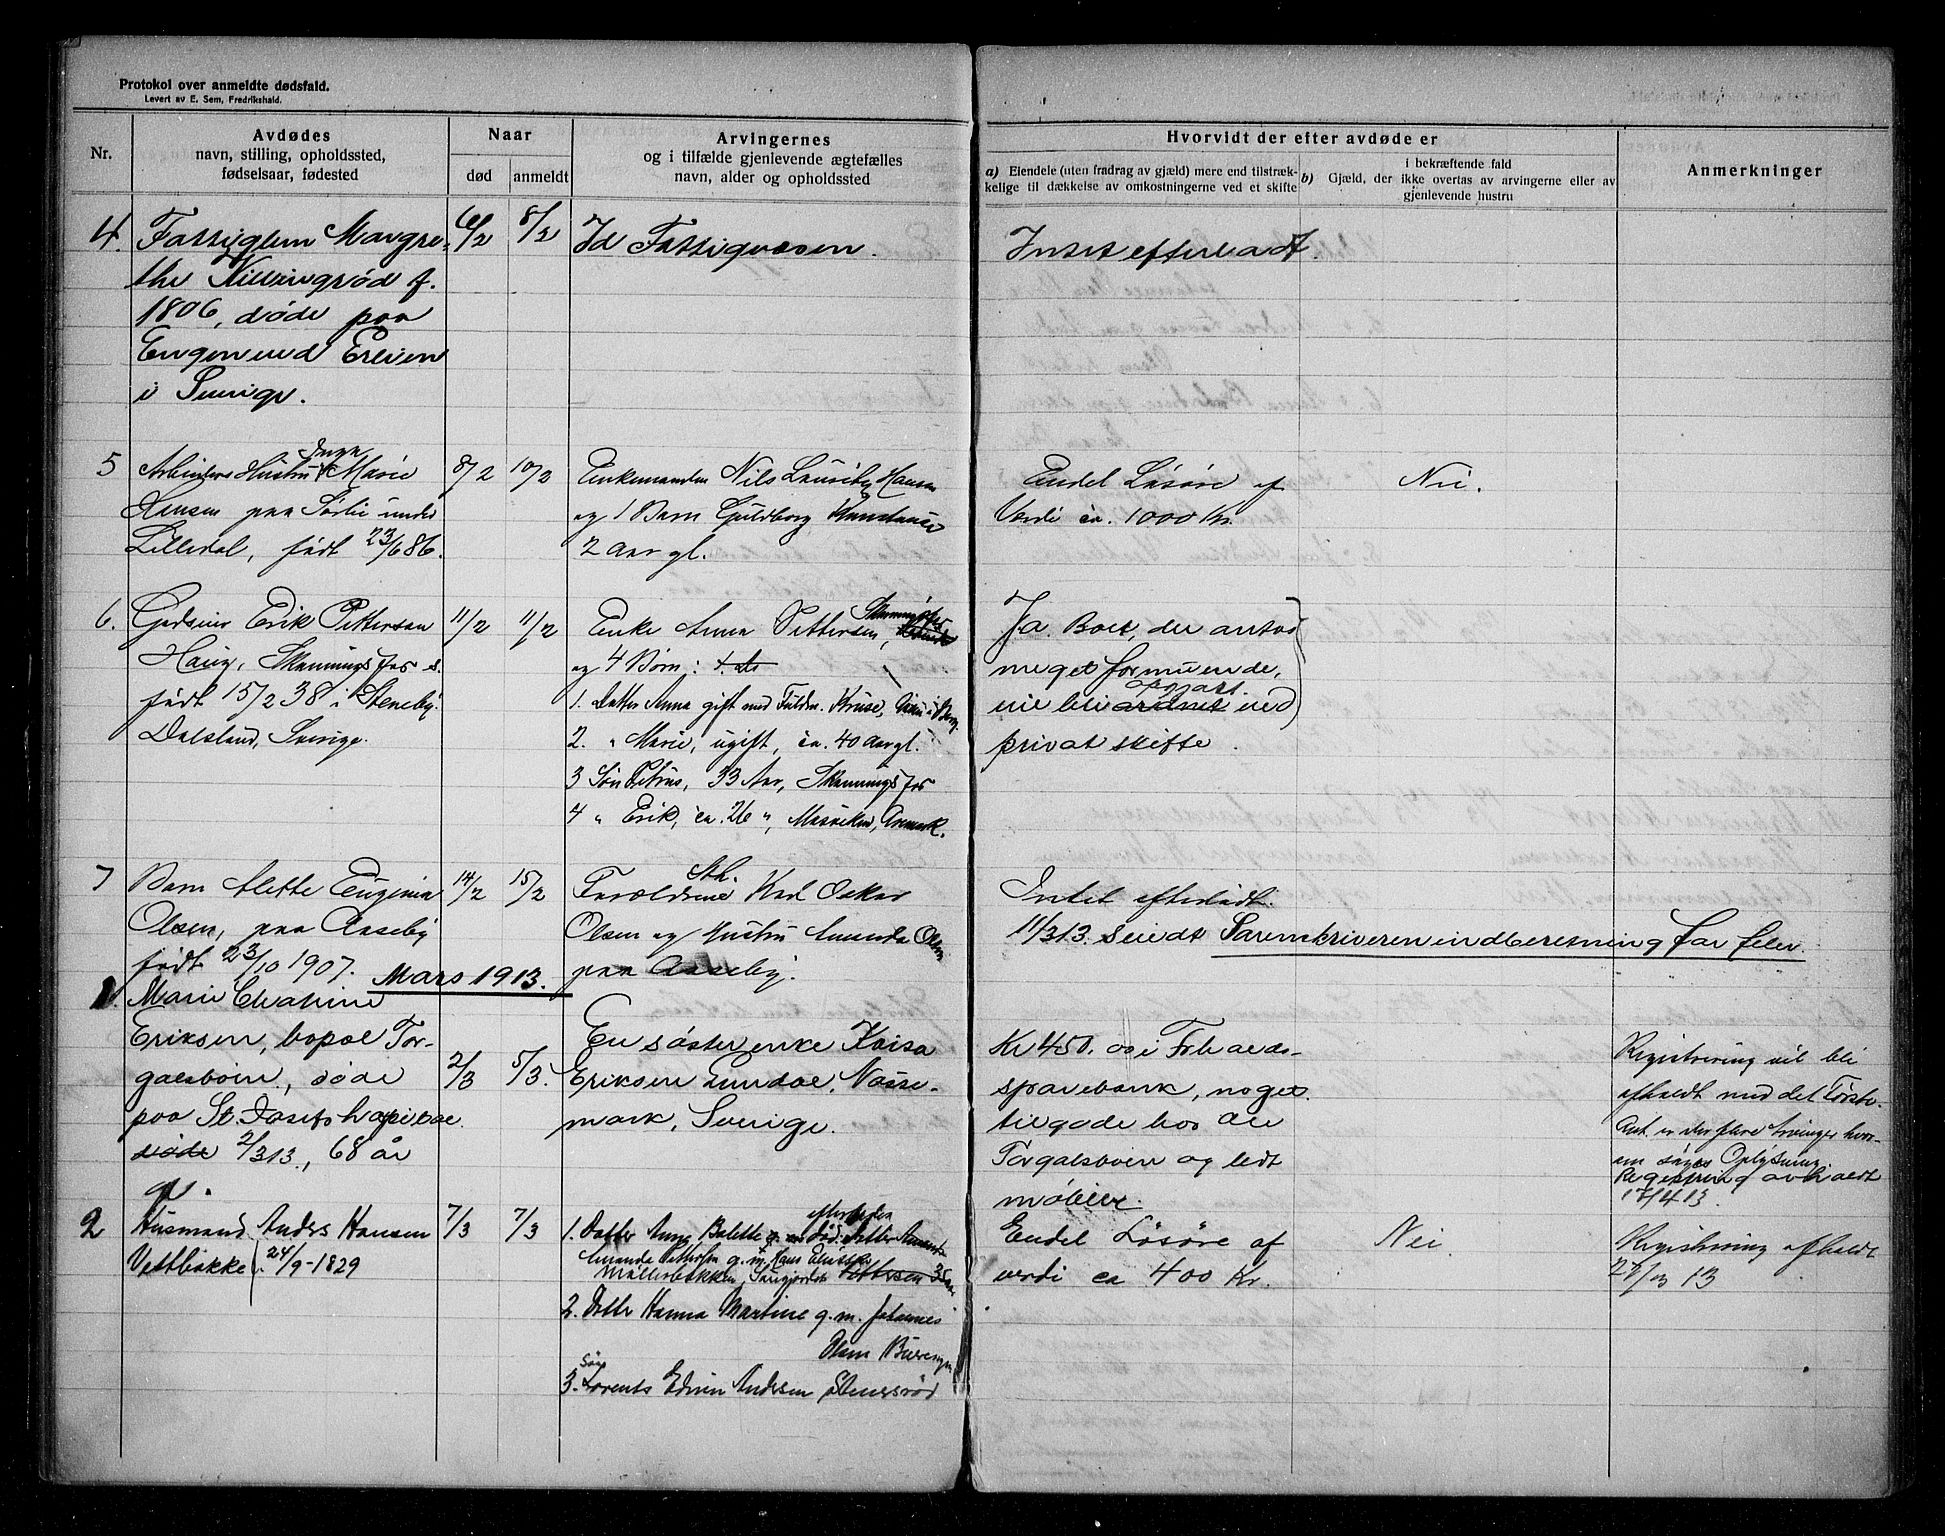 Protokol over anmeldte dødsfald.
Levert av E. Sem, Fredrikshald.
Nr.
Avdødes
navn, stilling, opholdssted,
fødselsaar, fødested
Naar
død
anmeldt
Arvingernes
og i tilfælde gjenlevende ægtefælles
navn, alder og opholdssted
Hvorvidt der efter avdøde er
a) Eiendele (uten fradrag av gjæld) mere end tilstræk-
kelige til dækkelse av omkostningerne ved et skifte
i bekræftende fald
b) Gjæld, der ikke overtas av arvingerne eller av
gjenlevende hustru
Anmerkninger
4. Fattiglem Margre-
the Killingrød f.
1806, døde paa
Engen und
i Sverige.
6/2
8/2
Id Fattigvæsen.
Intet efterladt.
5
Inga
Arbeiders Hustru Marie
Hansen paa Sørlie under
Lilledal, født 23/6 86.
8/2
10/2
Enkemanden Nils Hansen
og 1 Barn Guldborg Konstanse
2 aar gl.
Endel Løsøre af
Verdi ca. 1000 Kr.
Nei.
6. Gardeier Erik Pettersen
Haug, Skanningsfos
født 15/2 38 i Steneby
Dalsland, Sverige.
11/2
11/2
Enke Anna Pettersen,
og 4 Børn:
1. Datter Anna gift med Kruse,
2. " Marie, ugift, ca. 40 aar gl.
3 Søn Petrus, 33 Aar, Skanningsfos
4 " Erik, ca. 26 ", Aremark.
Ja. Boet, der antas
meget formuende,
opgjort
vil bli ordnet ved
privat skifte.
7 Barn Alette Eugenia
Olsen, paa Aaseby
født 23/10 1907.
14/2
15/2
Sth.
Forældrene Karl Oskar
Olsen og Hustru Amunda Olsen
paa Aaseby.
Intet efterladt.
11/3 13. sendt Sorenskriveren indberetning for febr
Mars 1913.
1. Marie
Eriksen, bopæl Tor-
galsbøen, døde
paa St. Josefs hospital
døde 2/3 13., 68 år
gl.
2/3
5/3.
En søster enke Kaisa
Eriksen Lundal, Nøsse-
mark, Sverige.
Kr 450.00 i Frhalds-
sparebank, noget
tilgode hos Ole
Torgalsbøen og lidt
møbler.
Registrering vil bli
afholdt med det Første.
Ant. er der flere Arvinger hvor-
om søges Oplysning.
Registrering avholdt
17/4 13.
2 Husmand Anders Hansen
Vestbakke f. 24/9-1829
7/3
7/3
1. Datter Anne Balette død. Datter
Amanda Pettersen g. m. Hans
Møllerbakken, Pettersen 35 aar
2. Datter Hanna Martine g. m. Johannes
Olsen
Søn
3. Lorents Edvin Andersen Stenersrød
Endel Løsøre af
verdi ca 400 Kr.
Nei
Registrering afholdt
13